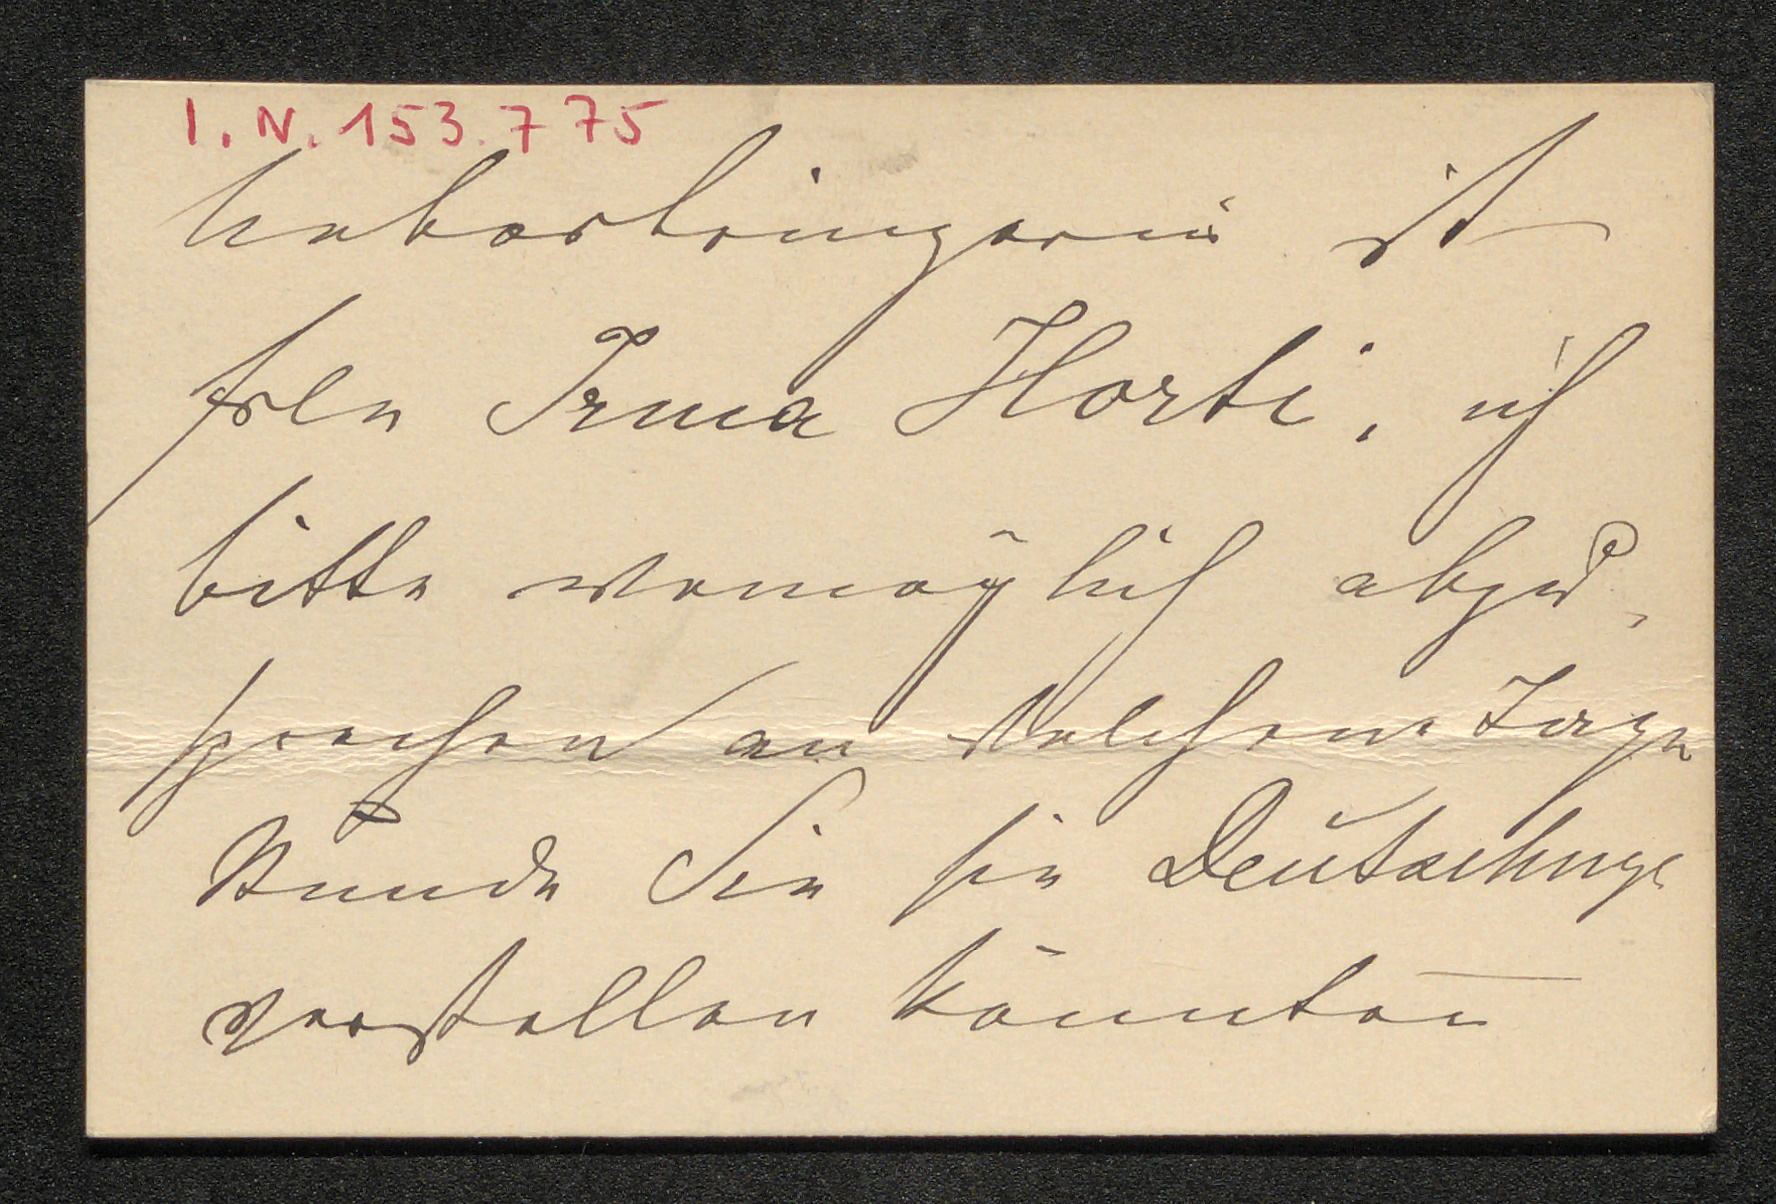 I.N. 153.775
Ueberbringerin ist
Frln Irma Horti, ich
bitte womöglich abzu-
sprechen an welchem Tage
Stunde Sie sie Deutschinger
vorstellen könnten